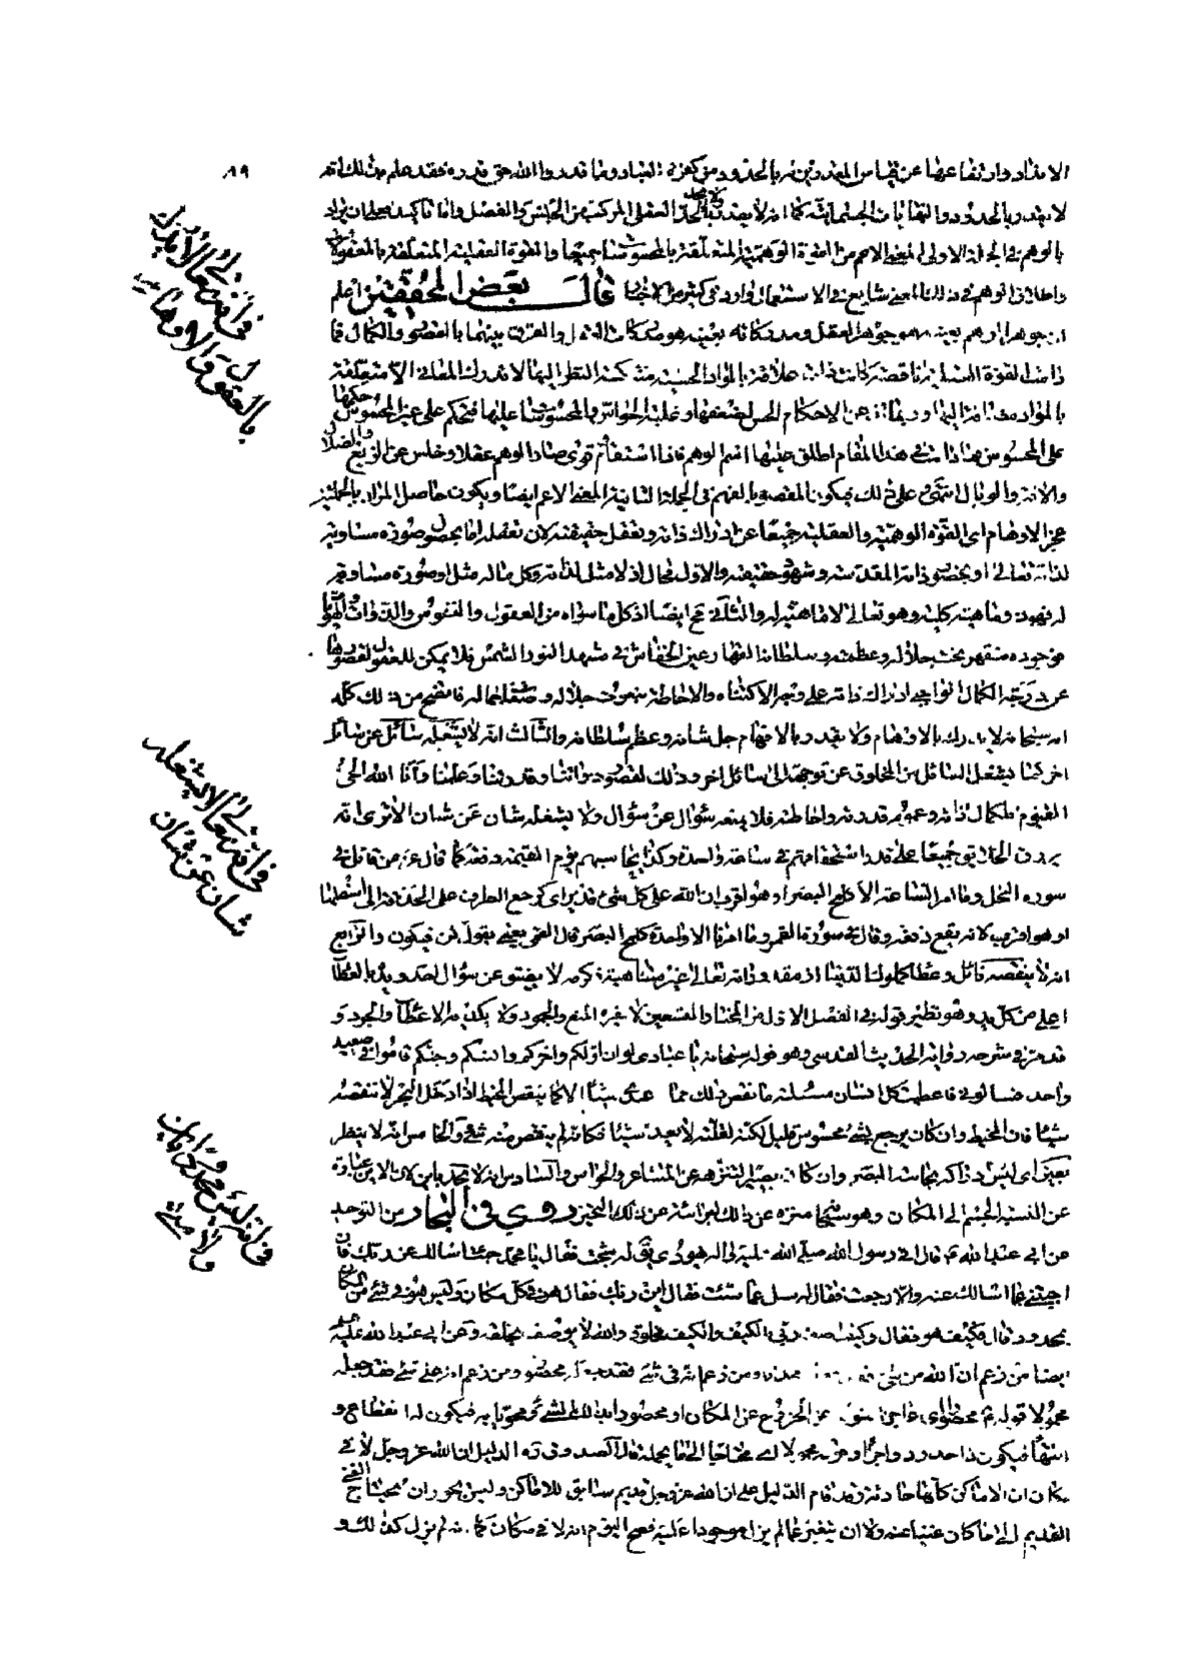 ٨٩
لا يقدر بالحدود والنهايات الجسمانية كما انه لا يقدر بالحد العقلي المركب من الجنس والفصل واما تأكيد
بالوهم في الجملة الاولى المعنى الاعم من القوة الوهمية المتعلقة بالمحسوسات جميعا والقوة العقلية المتعلقة بالمعقولات
واطلاق الوهم في ذلك المعنى شايع في الاستعمال وارد في كثير من قال بعض المحققين اعلم
ان جوهر الوهم بعينه هو جوهر العقل ومدركاته بعينه هو مدركات العقل والفرق بينهما بالقصور والكمال فما
دامت القوة العقلية ناقصة كانت ذات علاقة بالمواد الحسية منتكسة النظر اليها لا تدرك المعاني الا متعلقة
بالمواد مضافة اليها وربما تذعن لاحكام الحس لضعفها وغلبة الحواس والمحسوسات عليها فتحكم على غير المحسوس حكمها
على المحسوس فما دامت في هذا المقام اطلق عليها اسم الوهم فاذا استقام وقوى صار الوهم عقلا وخلص عن الزيغ والضلال
والآفة والوبال انتهى على ذلك فيكون المقصود بالفهم في الجملة الثانية المعنى الاعم ايضا ويكون حاصل المراد بالجملتين
عجز الاوهام اى القوة الوهمية والعقلية جميعا عن ادراك ذاته وتعقل حقيقته لان تعقله اما بحصول صورة مساوية
لذاته تعالى او بحضور ذاته المقدسة وشهود حقيقته والاول محال اذ لا مثل لذاته وكل ماله مثل او صورة مساوية
له فهو ذو ماهية كلية وهو تعالى لا ماهية له والثاني مح ايضا اذ كل ما سواه من العقول والنفوس والذوات والهويا
فوجوده منقهر تحت جلاله وعظمته وسلطانه القهار عين الخفاش في مشهد النور الشمس فلا يمكن للعقول لقصورها
عن درجة الكمال الواجبى ادراك ذاته على وجه الاكتناه والاحاطة بنعوت جلاله وصفات جماله فاتضح من ذلك كله
انه سبحانه لا يدرك بالاوهام ولا يقدر بالافهام جل شانه وعظم سلطانه والثالث انه لا يشغله سائل عن سائل
اخر كما يشغل السائل من المخلوق عن توجهه الى سائل اخر وذلك لقصور ذواتنا وقدرتنا وعلمنا وأما الله الحي
القيوم فلكمال ذاته وعموم قدرته واحاطته فلا يمنعه سؤال عن سؤال ولا يشغله شان عن شان الا ترى انه
يرزق الخلائق جميعا على قدر استحقاقهم في ساعة واحدة وكذا يحاسبهم يوم القيمة دفعة كما قال عز من قائل في
سورة النحل وما امر الساعة الا كلمح البصر او هو اقرب ان الله على كل شئ قدير اى كرجع الطرف على الحدقة الى اسفلها
او هو اقرب لانه يقع دفعة وقال في سورة القمر وما امرنا الا واحدة كلمح البصر قال القمي يعني بقول كن فيكون والرابع
انه لا ينقصه نائل وعطا كملوك الدنيا اذ مقدوراته تعالى غير متناهية وكرمه لا يضيق عن سؤال احد ويده بالعطاء
اعلى من كل يد وهو نظير قوله في الفصل الاول من المختار التسعين لا يفره المنع والجمود ولا يكديه الاعطاء والجود و
قد مر في شرحه رواية الحديث القدسي وهو قوله سبحانه يا عبادى لو ان اولكم واخركم وانسكم وجنكم قاموا في صعيد
واحد فسالونى فاعطيت كل انسان مسئلته ما نقص ذلك مما عندى شيئا الا كما ينقص المخيط اذا دخل البحر لا تنقصه
شيئا فان المخيط وان كان يرجع بشئ محسوس قليل لكنه لقلته لا يعد شيئا فكانه لم ينقص منه شئ والخامس انه لا ينظر
بعين اى ليس ادراكه بحاسة البصر وان كان بصيرا لتنزهه عن المشاعر والحواس والسادس انه لا يحد باين لان الاين عبارة
عن النسبة الجسم الى المكان وهو سبحانه منزه عن ذلك لبرائته عن ذلك التحيز روى في البحار من التوحيد
عن ابي عبد الله ع قال اتى رسول الله صلى الله عليه وآله يهودى يقال له سبحت فقال يا محمد جئت اسالك عن ربك فان
اجبتني عما اسالك عنه والا رجعت فقال له سل عما شئت فقال اين ربك فقال هو في كل مكان وليس هو في شئ من المكان
بمحدود قال فكيف هو فقال وكيف اصف ربي بالكيف والكيف مخلوق والله لا يوصف بخلقه وعن ابي عبد الله عليه
ايضا من زعم ان الله من شئ فقد جعله محدثا ومن زعم انه في شئ فقد جعله محصورا ومن زعم انه على شئ فقد جعله
محمولا قوله ع محصورا اى عاجزا ممنوعا عن الخروج عن المكان او محصورا بذلك الشئ ومحويا به فيكون له انقطاع و
انتهاء فيكون ذا حدود واجزاء وقوله محمولا اى محتاجا الى ما يحمله قال الصدوق ره الدليل ان الله عز وجل لا في
مكان ان الاماكن كلها حادثة وقد قام الدليل على ان الله عز وجل قديم سابق للاماكن وليس يجوز ان يحتاج الغنى
القديم الى ما كان غنيا عنه ولا ان يتغير عما لم يزل موجودا عليه فصح اليوم انه لا في مكان كما انه لم يزل كذلك و
في انه تعالى لا يدرك
بالعقول والاوهام
في انه تعالى لا يشغله
شان عن شان
في انه ليس محدود بمكان
ولا اينية